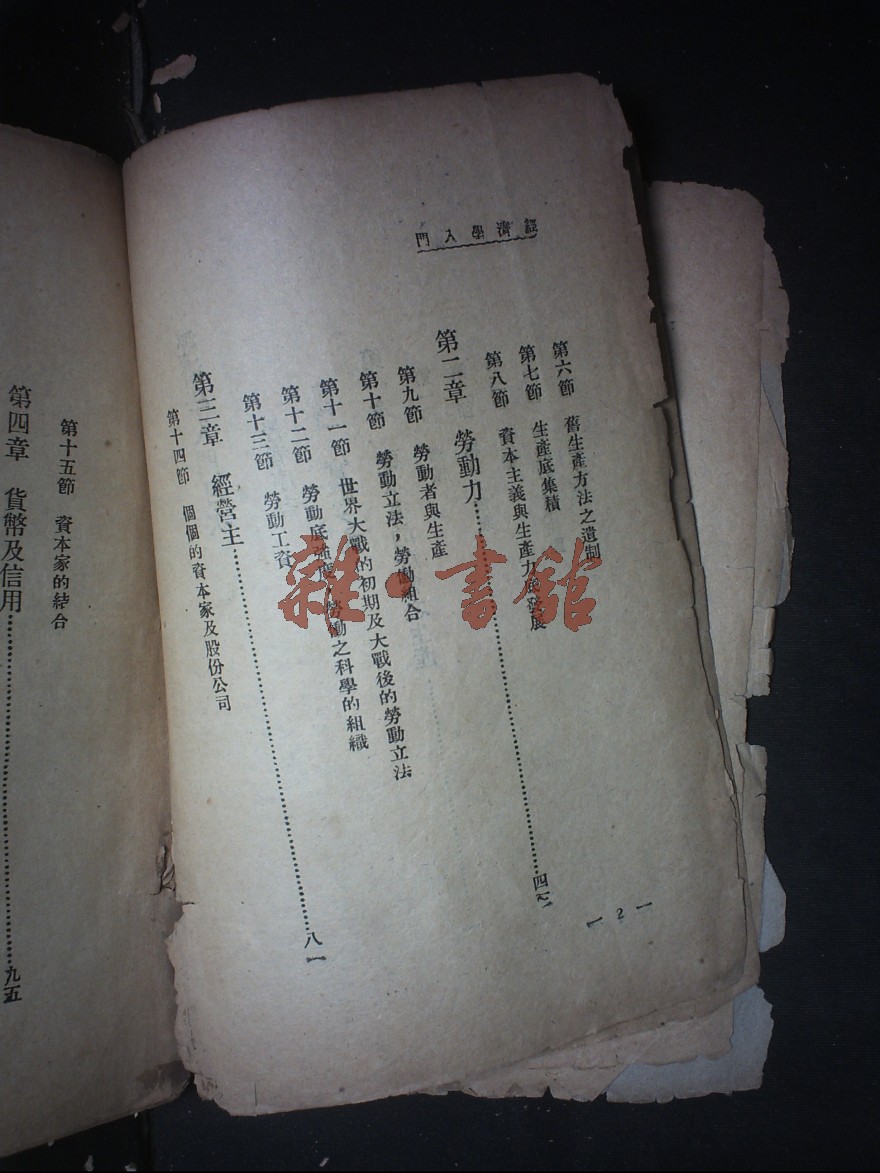 經濟學入門
第六節 舊生產方法之遺制
第七節 生產底集積
第八節 資本主義與生產力底發展
第二章 勞動力
第九節 勞動者與生產
第十節 勞動立法，勞働組合
第十一節 世界大戰的初期及大戰後的勞動立法
第十二節 勞動底強度 勞働之科學的組織
第十三節 勞動工資
第三章 經營主 八一
第十四節 個個的資本家及股份公司
2
第十五節 資本家的結合
第四章 貨幣及信用 九五
雜·書館